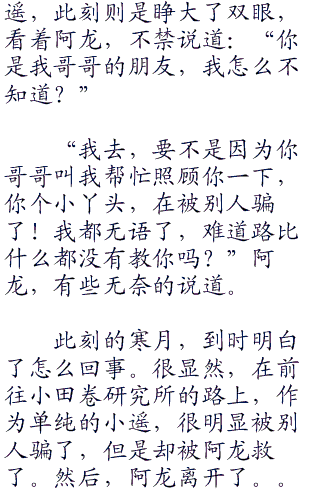 遥，此刻则是睁大了双眼，
看着阿龙，不禁说道：“你
是我哥哥的朋友，我怎么不
知道？”
“我去，要不是因为你
哥哥叫我帮忙照顾你一下，
你个小丫头，在被别人骗
了！我都无语了，难道路比
什么都没有教你吗？”阿
龙，有些无奈的说道。
此刻的寒月，到时明白
了怎么回事。很显然，在前
往小田卷研究所的路上，作
为单纯的小遥，很明显被别
人骗了，但是却被阿龙救
了。然后，阿龙离开了。。